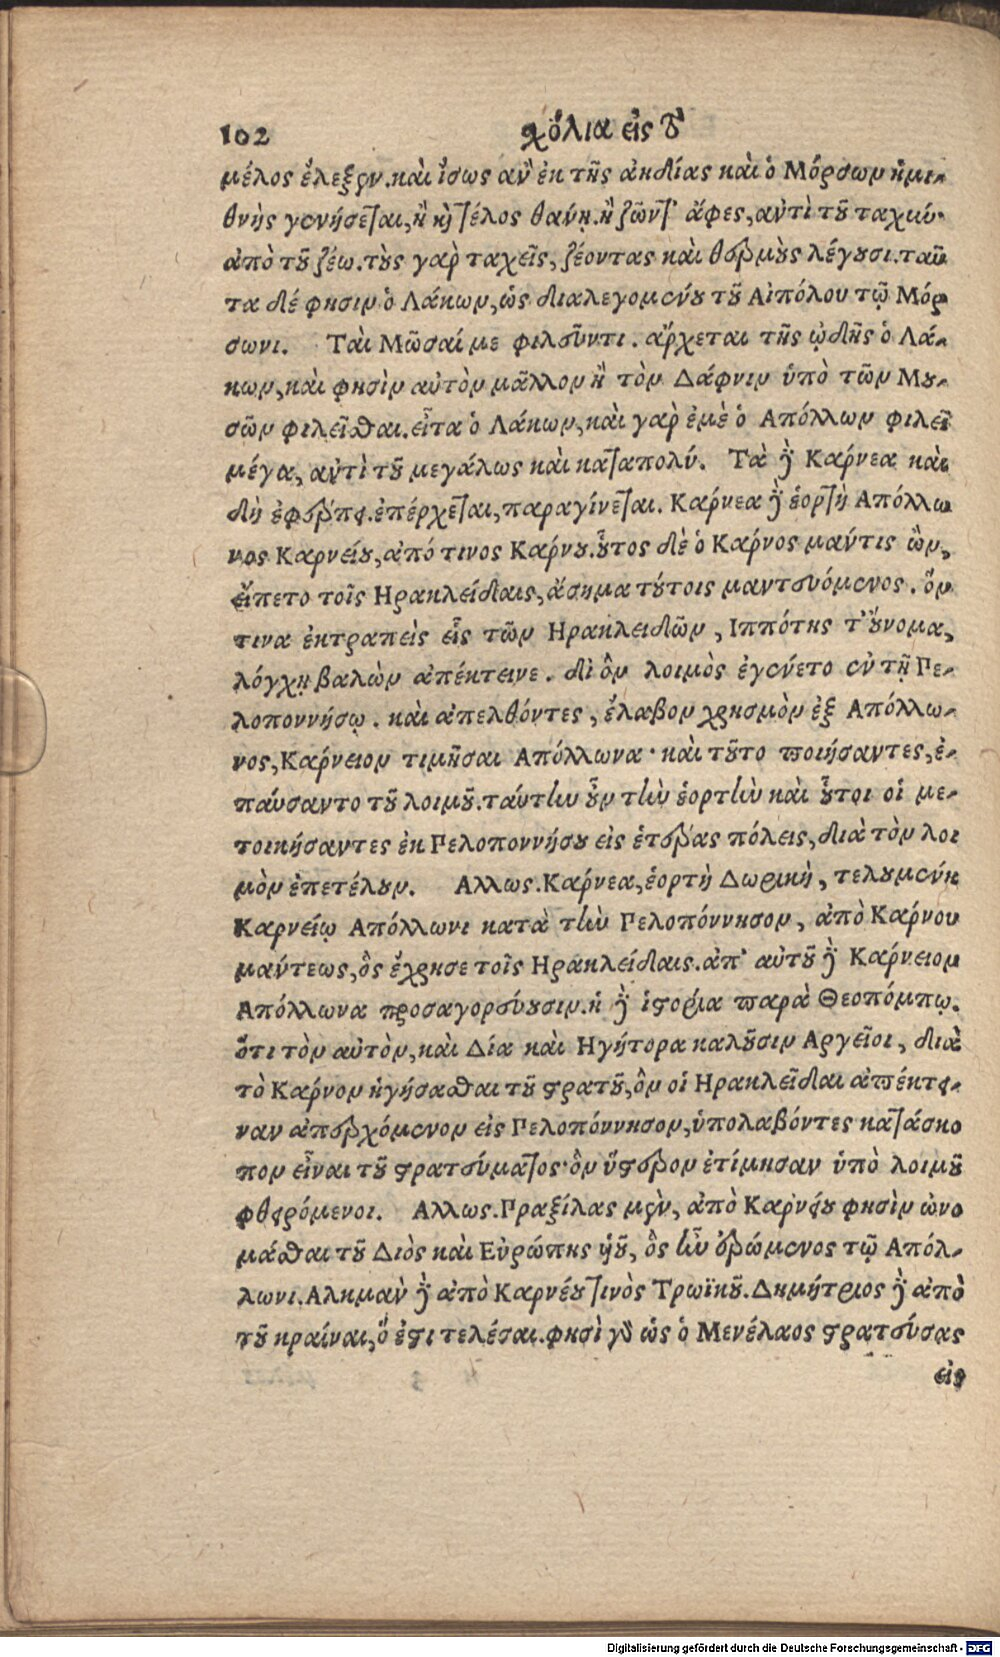 102 χόλια εἰς τ
μέλος ἔλεξεν. καὶ ἴσως ἂν ἐκ τῆς ἀηδίας καὶ ὁ Μόρσων ἡμι-
θνὴς γενήσεται, ἢ καὶ τέλος θανῃ. ἢ ζῶντ' ἄφες, αὐτὶ τοῦ ταχύ·
ἀπὸ τοῦ ζέω. τοὺς γαρ ταχεῖς, ζέοντας καὶ θερμοὺς λέγουσι. ταῦ
τα δέ φησιν ὁ Λάκων, ὡς διαλεγομένου τοῦ Αἰπόλου τῷ Μόρ
σωνι. Ταὶ Μῶσαί με φιλεῦντι. ἄρχεται τῆς ᾠδῆς ὁ Λά-
κων, καὶ φησὶν αὐτὸν μᾶλλον ἢ τὸν Δάφνιν ὑπὸ τῶν Μου-
σῶν φιλεῖσθαι. εἶτα ὁ Λάκων, καὶ γαρ ἐμὲ ὁ Απόλλων φιλεῖ
μέγα, αὐτὶ τοῦ μεγάλως καὶ καταπολύ. Τὰ δὲ Κάρνεα καὶ
δὴ ἐφέρπει. ἐπέρχεται, παραγίνεται. Κάρνεα δὲ ἑορτὴ Απόλλω
νος Καρνείου, ἀπό τινος Κάρνου. οὗτος δὲ ὁ Κάρνος μαύτις ὢν,
εἵπετο τοῖς Ηρακλείδαις, ἄσημα τούτοις μαντευόμενος. ὅν
τινα ἐκτραπεὶς εἷς τῶν Ηρακλειδῶν, Ιππότης τ' οὔνομα,
λόγχῃ βαλὼν απέκτεινε. δι ὃν λοιμὸς ἐγένετο ἐν τῇ Πε-
λοποννήσῳ. καὶ απελθόντες, ἔλαβον χρησμὸν ἐξ Απόλλω-
νος, Κάρνειον τιμῆσαι Απόλλωνα· καὶ τοῦτο ποιήσαντες, ἐ-
παύσαντο τοῦ λοιμοῦ. ταύτην οὖν τὴν ἑορτὴν καὶ οὗτοι οἱ με-
τοικήσαντες ἐκ Πελοποννήσου εἰς ἑτέρας πόλεις, διὰ τὸν λοι
μὸν ἐπετέλουν. Αλλως. Κάρνεα, ἑορτὴ Δωρικὴ, τελουμένη
Καρνείῳ Απόλλωνι κατὰ τὴν Πελοπόννησον, ἀπὸ Κάρνου
μάντεως, ὃς ἔχρησε τοῖς Ηρακλείδαις. ἀπ' αὐτοῦ δὲ Κάρνειον
Απόλλωνα προσαγορεύουσιν. ἡ δὲ ἱστορία παρὰ Θεοπόμπῳ.
ὅτι τὸν αὐτὸν, καὶ Δία καὶ Ηγήτορα καλοῦσιν Αργεῖοι, διὰ
τὸ Κάρνον ἡγήσασθαι τοῦ στρατοῦ, ὃν οἱ Ηρακλεῖδαι απέκτει-
ναν απερχόμενον εἰς Πελοπόννησον, ὑπολαβόντες κατάσκο
πον εἶναι τοῦ στρατεύματος· ὃν ὕστερον ἐτίμησαν ὑπὸ λοιμοῦ
φθειρόμενοι. Αλλως. Πραξίλας μὲν, ἀπὸ Καρνείου φησὶν ὠνο
μάσθαι τοῦ Διὸς καὶ Εὐρώπης ὑοῦ, ὃς ἦν ἐρώμενος τῷ Απόλ-
λωνι. Αλκμαν δὲ ἀπὸ Καρνέου τινὸς Τρωϊκοῦ. Δημήτριος δὲ ἀπὸ
τοῦ κραίναι, ὅ ἐστι τελέσαι. φησὶ γὰρ ὡς ὁ Μενέλαος στρατεύσας
εἰς
Digitalisierung gefördert durch die Deutsche Forschungsgemeinschaft - DFG